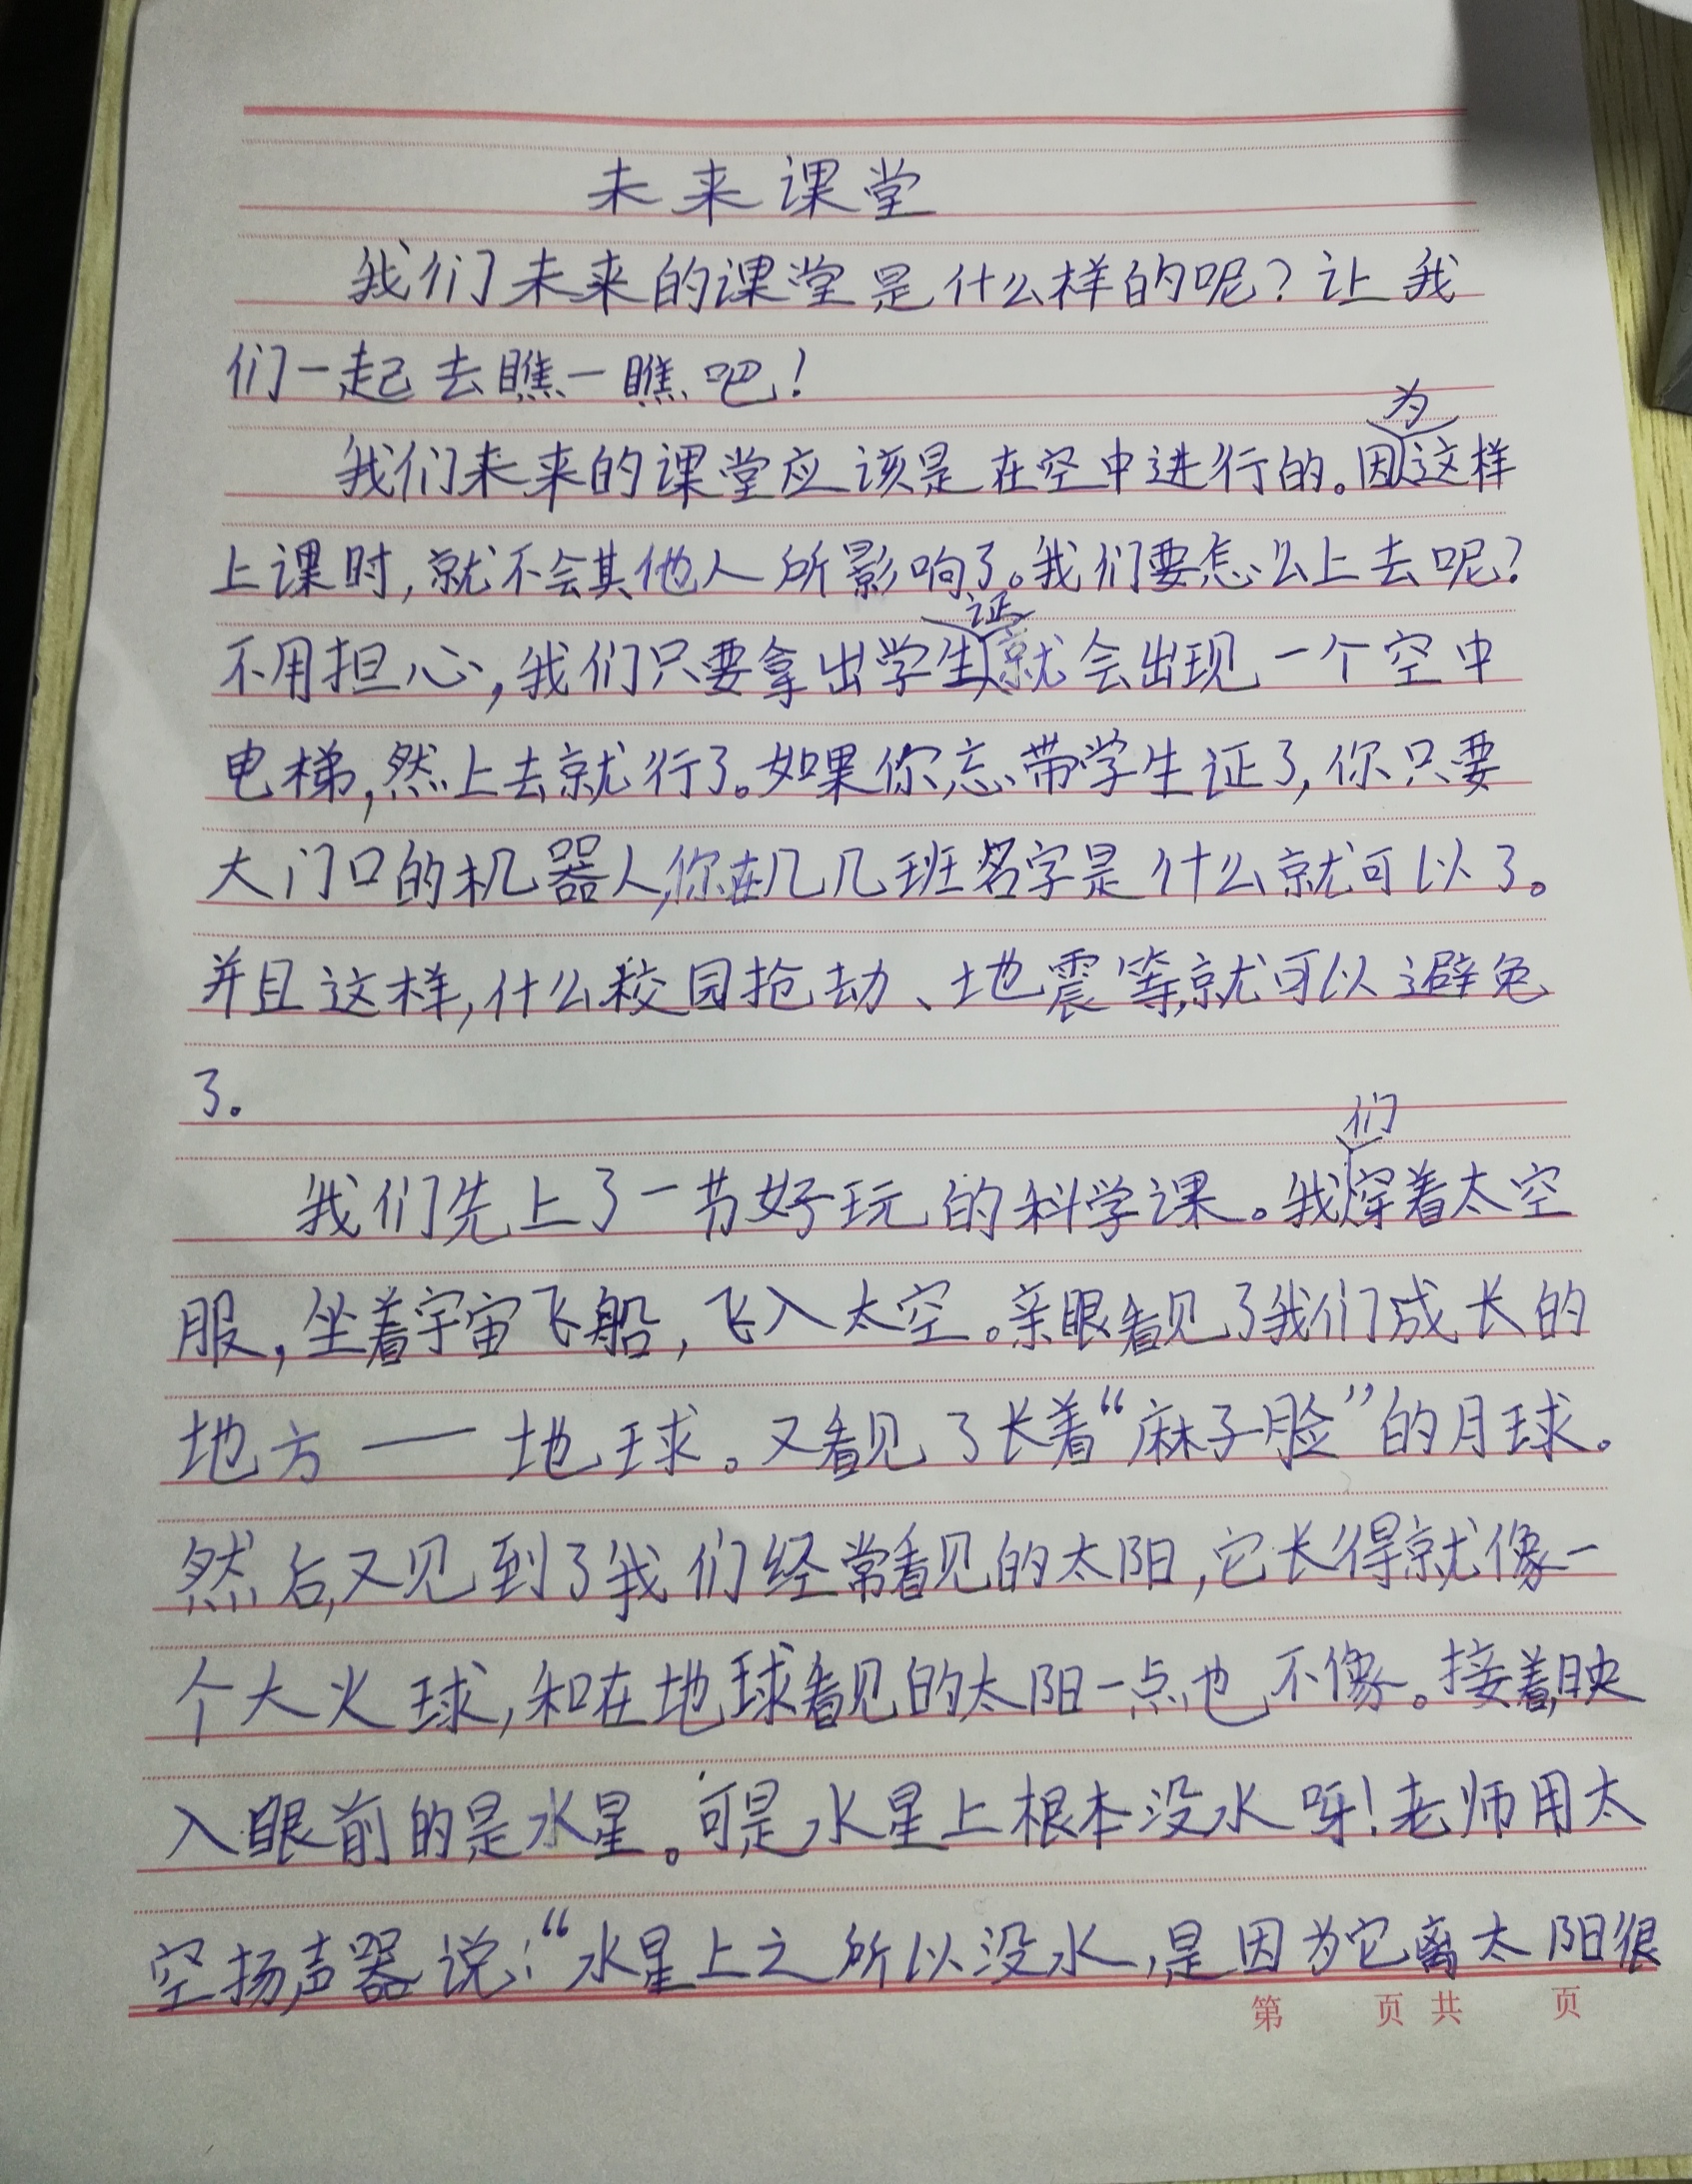 未来课堂
我们未来的课堂是什么样的呢？让我
们一起去瞧一瞧吧！
我们未来的课堂应该是在空中进行的。因为这样
上课时，就不会其他人所影响了。我们要怎么上去呢？
不用担心，我们只要拿出学生证就会出现一个空中
电梯，然上去就行了。如果你忘带学生证了，你只要
大门口的机器人，你在几几班名字是什么就可以了。
并且这样，什么校园抢劫、地震等，就可以避免
了。
我们先上了一节好玩的科学课。我们穿着太空
服，坐着宇宙飞船，飞入太空。亲眼看见了我们成长的
地方——地球。又看见了长着“麻子脸”的月球。
然后，又见到了我们经常看见的太阳，它长得就像一
个大火球，和在地球看见的太阳一点也不像。接着，映
入眼前的是水星。可是水星上根本没水呀！老师用太
空扬声器说：“水星上之所以没水，是因为它离太阳很
第 页 共 页